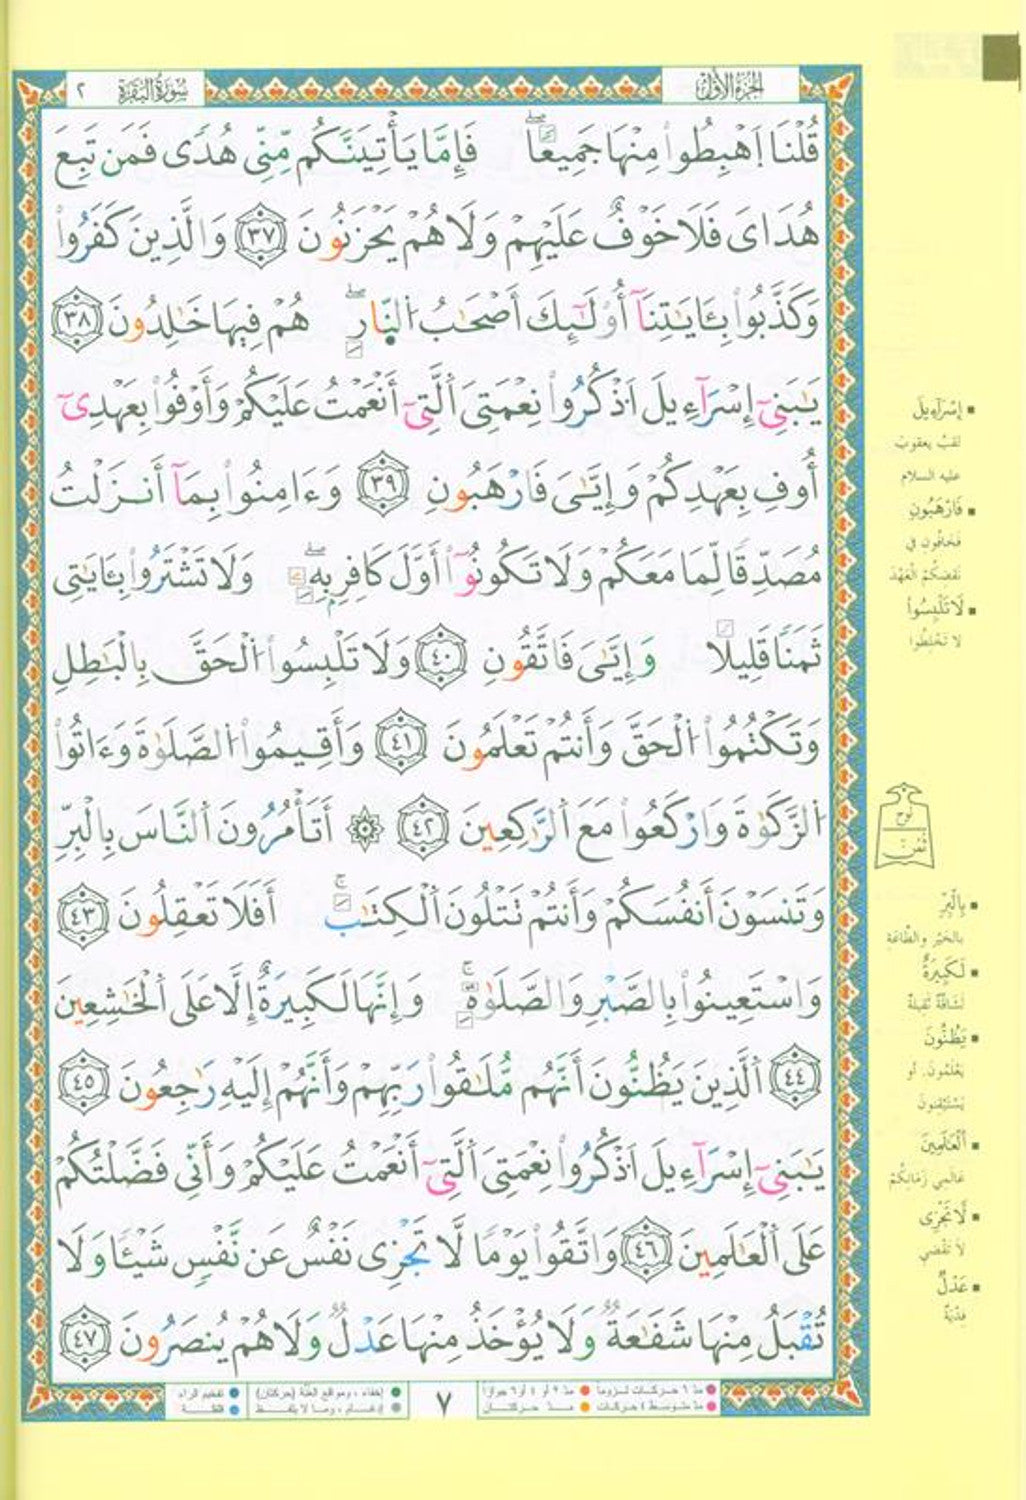 الجزء الأول
سورة البقرة ٢
قُلْنَا اَهْبِطُوا۟ مِنْهَا جَمِيعًاۖ فَإِمَّا يَأْتِيَنَّكُم مِّنِّي هُدًى فَمَن تَبِعَ
هُدَايَ فَلَا خَوْفٌ عَلَيْهِمْ وَلَا هُمْ يَحْزَنُونَ ٣٧ وَالَّذِينَ كَفَرُوا۟
وَكَذَّبُوا۟ بِـَٔايَٰتِنَآ أُو۟لَٰٓئِكَ أَصْحَٰبُ اُ۬لنّ۪ارِۖ هُمْ فِيهَا خَٰلِدُونَ ٣٨
يَٰبَنِيٓ إِسْرَآءِيلَ اَذْكُرُوا۟ نِعْمَتِيَ اَ۬لَّتِيٓ أَنْعَمْتُ عَلَيْكُمْ وَأَوْفُوا۟ بِعَهْدِيٓ
أُوفِ بِعَهْدِكُمْ وَإِيَّٰيَ فَارْهَبُونِ ٣٩ وَءَامِنُوا۟ بِمَآ أَنزَلْتُ
مُصَدِّقًا لِّمَا مَعَكُمْ وَلَا تَكُونُوٓا۟ أَوَّلَ كَافِرِۭ بِهِۦۖ وَلَا تَشْتَرُوا۟ بِـَٔايَٰتِي
ثَمَنًا قَلِيلًا وَإِيَّٰيَ فَاتَّقُونِ ٤٠ وَلَا تَلْبِسُوا۟ اُ۬لْحَقَّ بِالْبَٰطِلِ
وَتَكْتُمُوا۟ اُ۬لْحَقَّ وَأَنتُمْ تَعْلَمُونَ ٤١ وَأَقِيمُوا۟ اُ۬لصَّلَوٰةَ وَءَاتُوا۟
اُ۬لزَّكَوٰةَ وَارْكَعُوا۟ مَعَ اَ۬لرَّٰكِعِينَ ٤٢ ۞ أَتَأْمُرُونَ اَ۬لنَّاسَ بِالْبِرِّ
وَتَنسَوْنَ أَنفُسَكُمْ وَأَنتُمْ تَتْلُونَ اَ۬لْكِتَٰبَۚ أَفَلَا تَعْقِلُونَ ٤٣
وَاسْتَعِينُوا۟ بِالصَّبْرِ وَالصَّلَوٰةِۚ وَإِنَّهَا لَكَبِيرَةٌ إِلَّا عَلَى اَ۬لْخَٰشِعِينَ
٤٤ اَ۬لَّذِينَ يَظُنُّونَ أَنَّهُم مُّلَٰقُوا۟ رَبِّهِمْ وَأَنَّهُمْ إِلَيْهِ رَٰجِعُونَ ٤٥
يَٰبَنِيٓ إِسْرَآءِيلَ اَذْكُرُوا۟ نِعْمَتِيَ اَ۬لَّتِيٓ أَنْعَمْتُ عَلَيْكُمْ وَأَنِّي فَضَّلْتُكُمْ
عَلَى اَ۬لْعَٰلَمِينَ ٤٦ وَاتَّقُوا۟ يَوْمًا لَّا تَجْزِي نَفْسٌ عَن نَّفْسٍ شَيْـًٔا وَلَا
تُقْبَلُ مِنْهَا شَفَٰعَةٌ وَلَا يُؤْخَذُ مِنْهَا عَدْلٌ وَلَا هُمْ يُنصَرُونَ ٤٧
إِسْرَآءِيلَ
لقبُ يعقوبَ
عليه السلام
فَارْهَبُونِ
فخافُونِ في
نَقضِكُمُ العَهْدَ
لَا تَلْبِسُوا۟
لا تَخلِطُوا
لوح
ثُمُن
بِالْبِرِّ
بالخَيْرِ والطَّاعَةِ
لَكَبِيرَةٌ
لَشَاقَّةٌ ثَقِيلَةٌ
يَظُنُّونَ
يَعْلَمُونَ، أو
يَسْتَيْقِنُونَ
اَ۬لْعَٰلَمِينَ
عَالَمِي زَمَانِكُمْ
لَّا تَجْزِي
لا تَقْضِي
عَدْلٌ
فِدْيَةٌ
مدّ ٦ حركات لزوماً مدّ ٢ أو ٤ أو ٦ جوازاً إخفاء، ومواقع الغُنَّة (حركتان) تفخيم الراء
مدّ متوسط ٤ حركات مدّ حركتان إدغام، وما لا يُلفظ قلقلة
٧